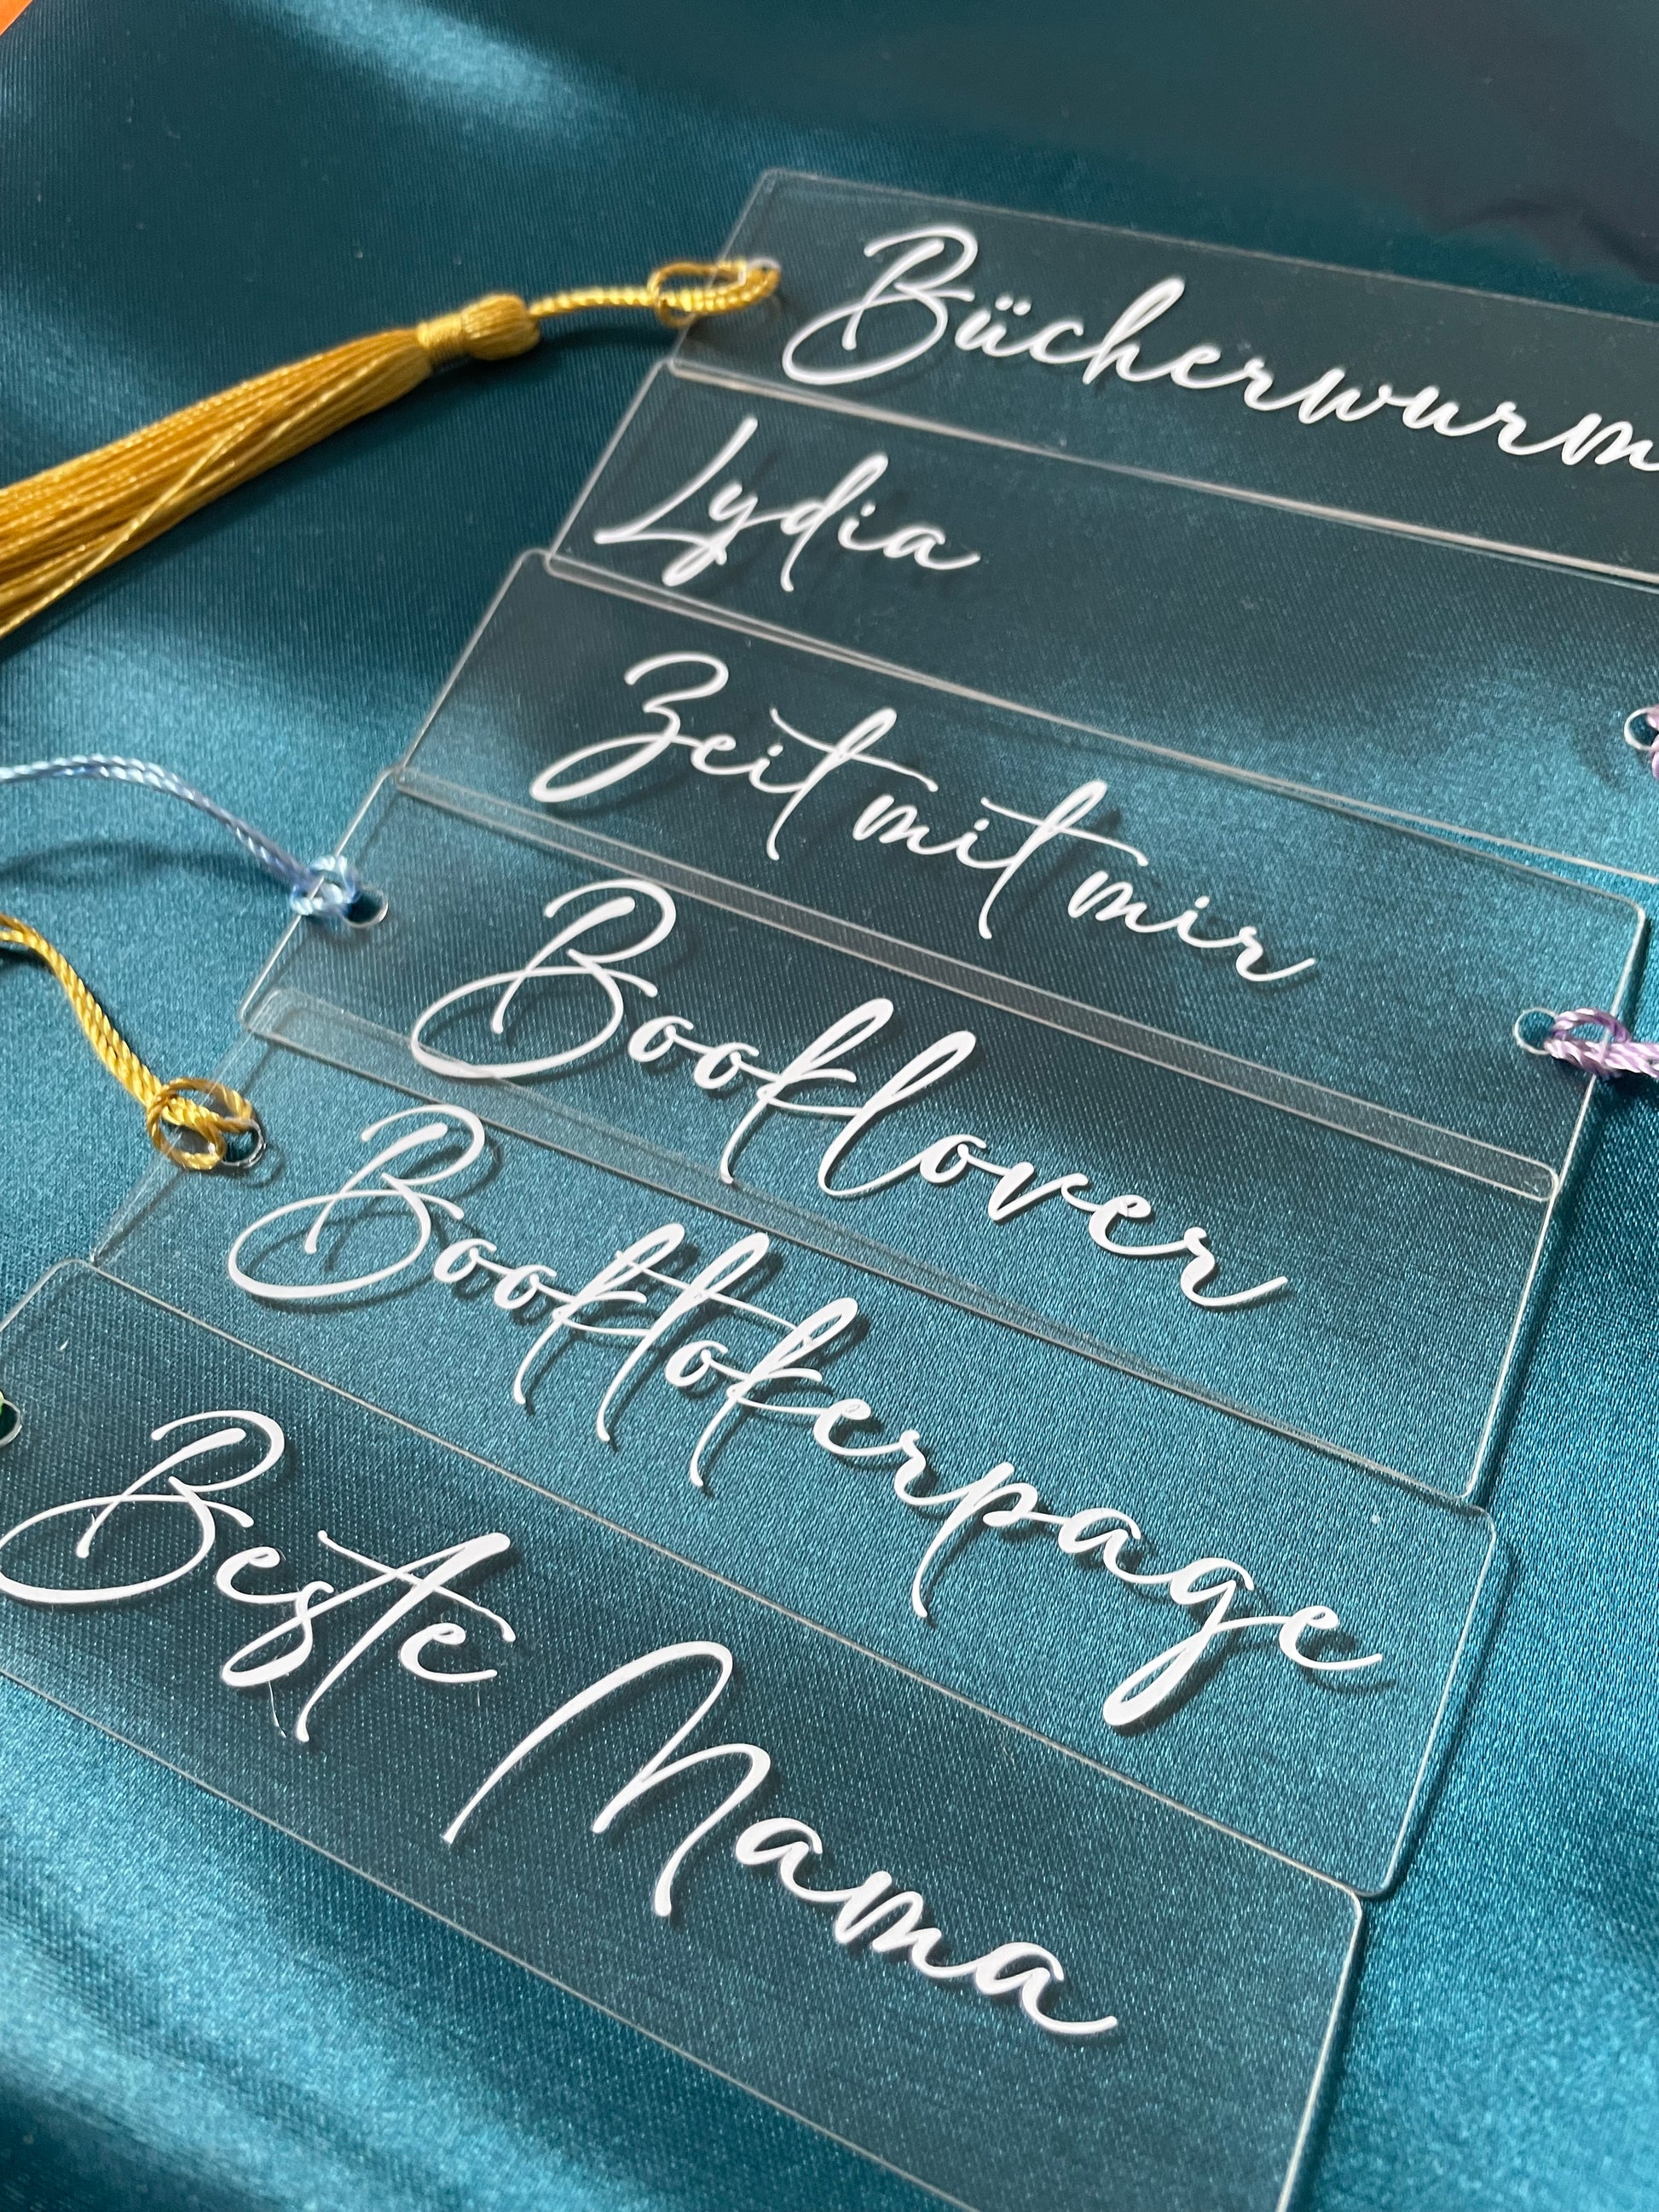 Bücherwurm
Lydia
Zeit mit mir
Booklover
Booktokerpage
Beste Mama